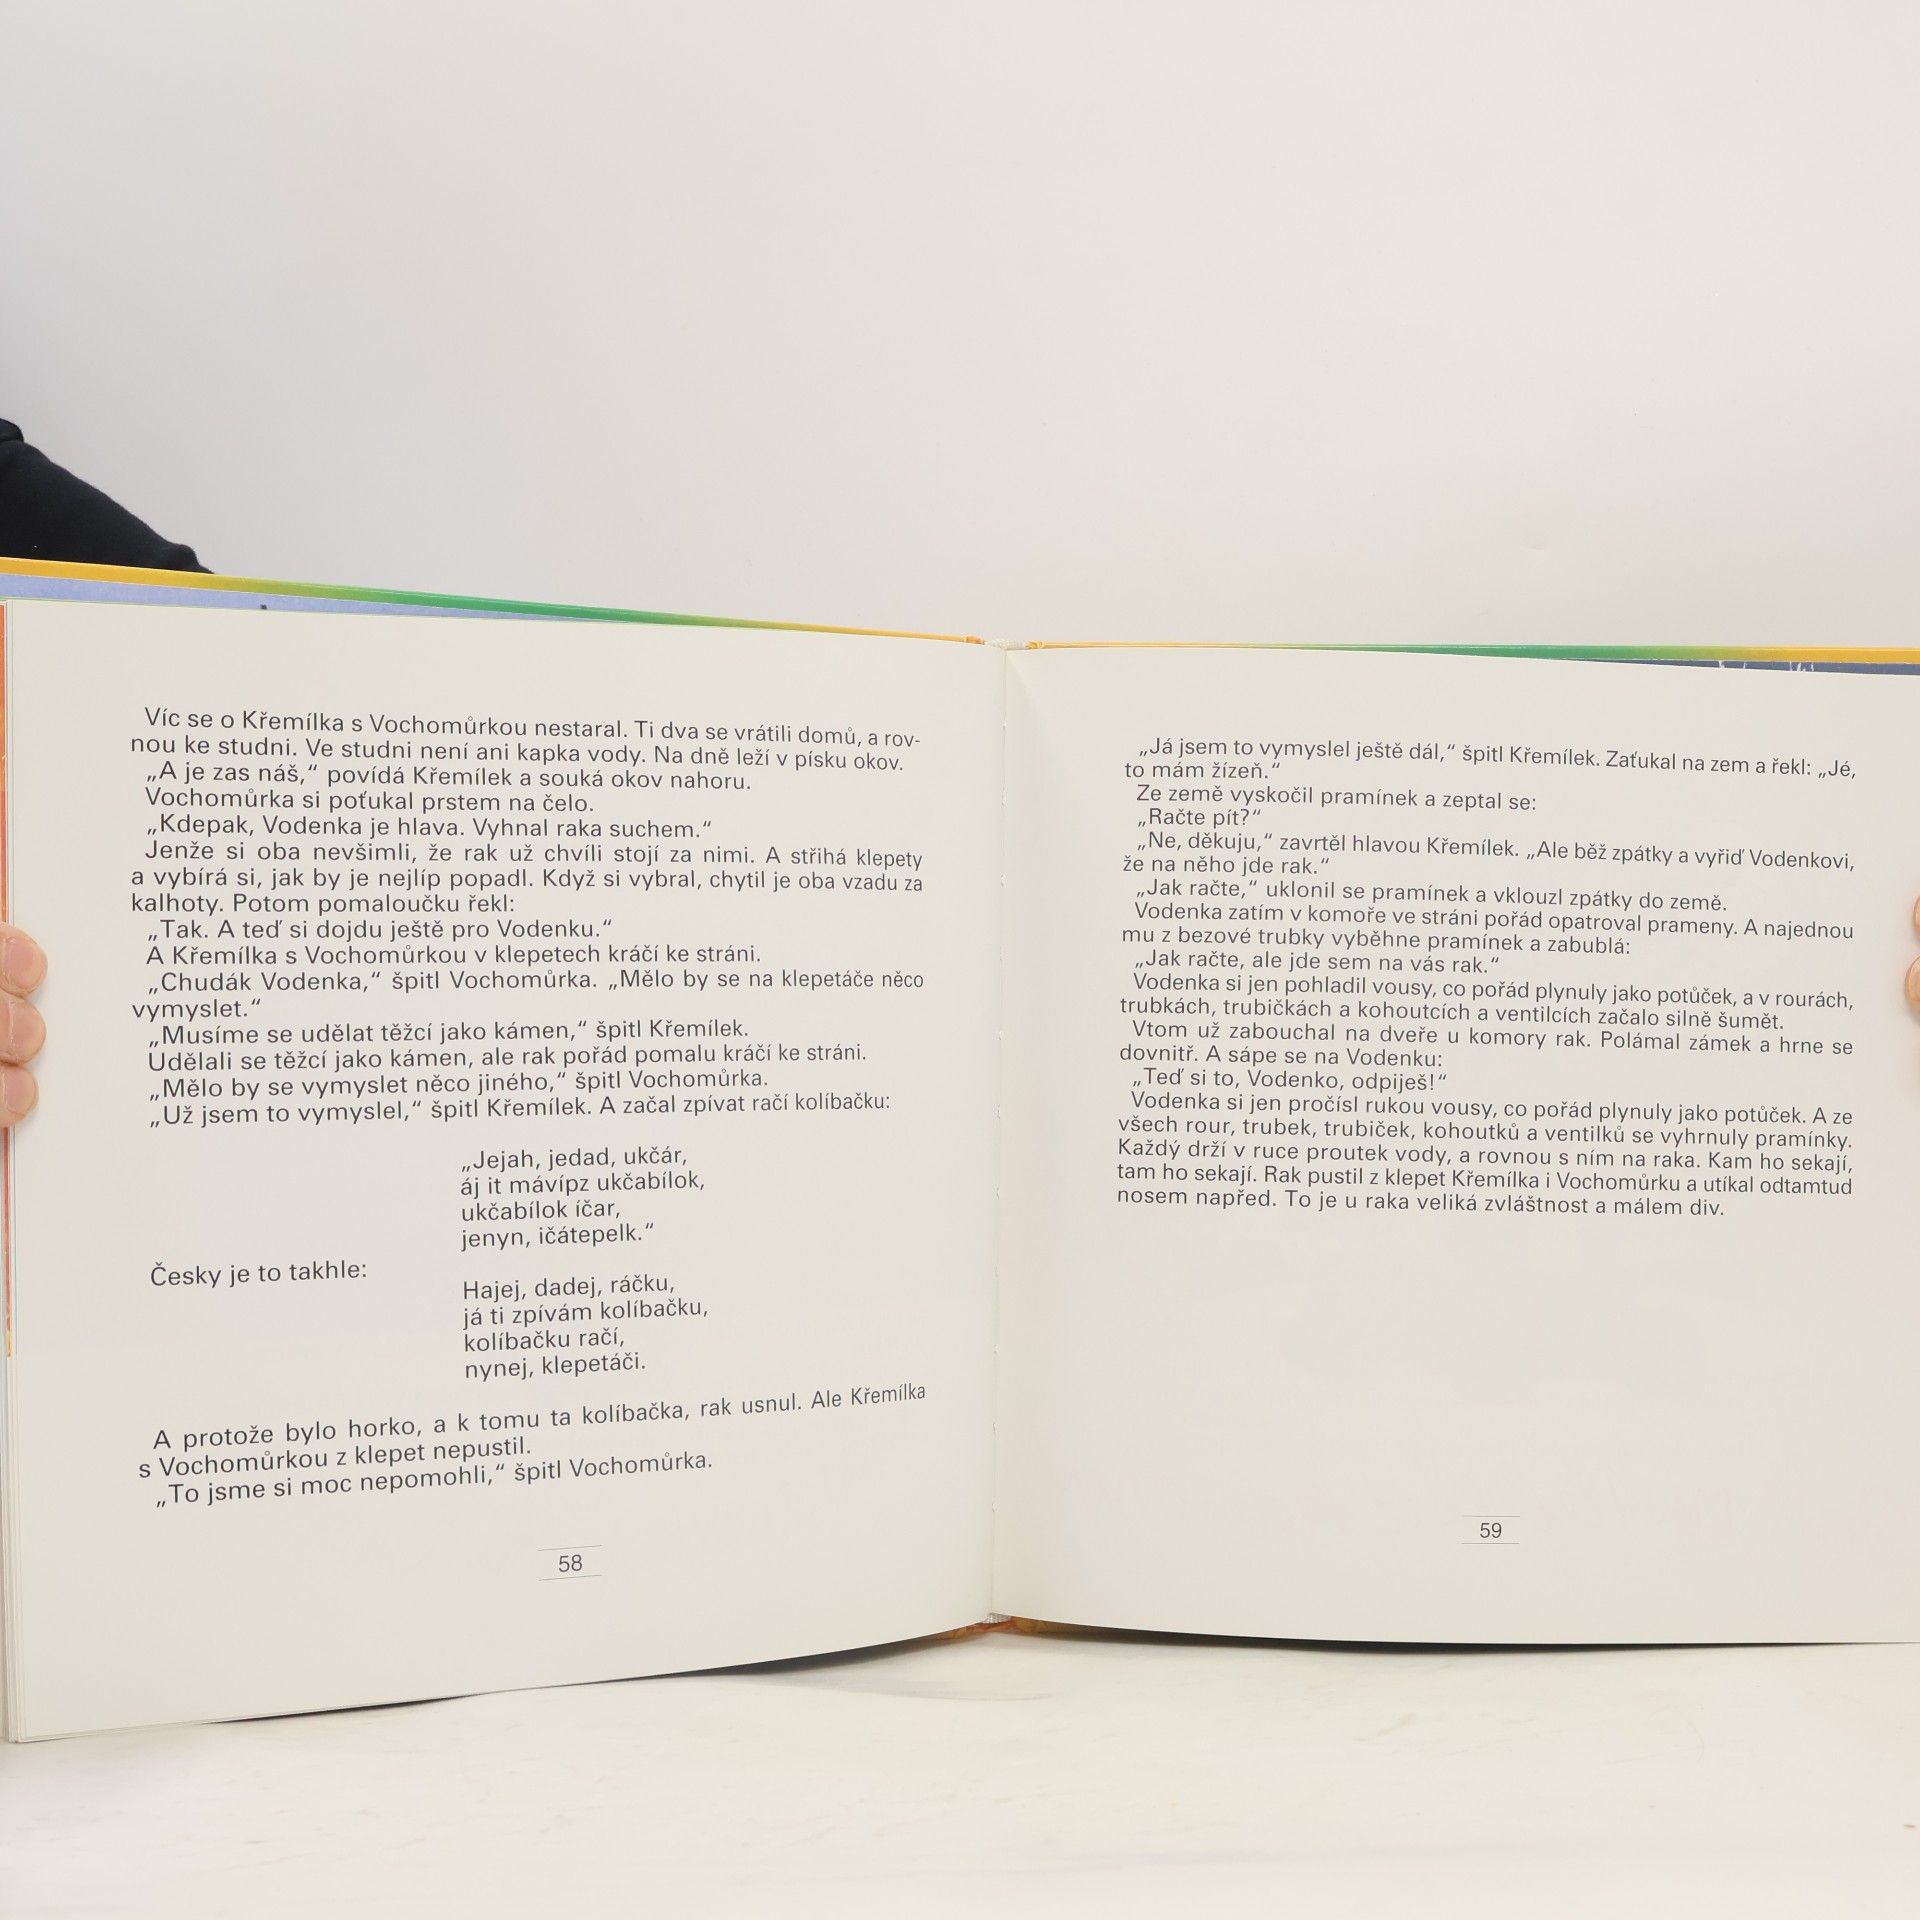 Víc se o Křemílka s Vochomůrkou nestaral. Ti dva se vrátili domů, a rov-
nou ke studni. Ve studni není ani kapka vody. Na dně leží v písku okov.
„A je zas náš,“ povídá Křemílek a souká okov nahoru.
Vochomůrka si poťukal prstem na čelo.
„Kdepak, Vodenka je hlava. Vyhnal raka suchem.“
Jenže si oba nevšimli, že rak už chvíli stojí za nimi. A střihá klepety
a vybírá si, jak by je nejlíp popadl. Když si vybral, chytil je oba vzadu za
kalhoty. Potom pomaloučku řekl:
„Tak. A teď si dojdu ještě pro Vodenku.“
A Křemílka s Vochomůrkou v klepetech kráčí ke stráni.
„Chudák Vodenka,“ špitl Vochomůrka. „Mělo by se na klepetáče něco
vymyslet.“
„Musíme se udělat těžcí jako kámen,“ špitl Křemílek.
Udělali se těžcí jako kámen, ale rak pořád pomalu kráčí ke stráni.
„Mělo by se vymyslet něco jiného,“ špitl Vochomůrka.
„Už jsem to vymyslel,“ špitl Křemílek. A začal zpívat račí kolíbačku:
„Jejah, jedad, ukčár,
áj it mávípz ukčabílok,
ukčabílok íčar,
jenyn, ičátepelk.“
Česky je to takhle:
Hajej, dadej, ráčku,
já ti zpívám kolíbačku,
kolíbačku račí,
nynej, klepetáči.
A protože bylo horko, a k tomu ta kolíbačka, rak usnul. Ale Křemílka
s Vochomůrkou z klepet nepustil.
„To jsme si moc nepomohli,“ špitl Vochomůrka.
58
„Já jsem to vymyslel ještě dál,“ špitl Křemílek. Zaťukal na zem a řekl: „Jé,
to mám žízeň.“
Ze země vyskočil pramínek a zeptal se:
„Račte pít?“
„Ne, děkuju,“ zavrtěl hlavou Křemílek. „Ale běž zpátky a vyřiď Vodenkovi,
že na něho jde rak.“
„Jak račte,“ uklonil se pramínek a vklouzl zpátky do země.
Vodenka zatím v komoře ve stráni pořád opatroval prameny. A najednou
mu z bezové trubky vyběhne pramínek a zabublá:
„Jak račte, ale jde sem na vás rak.“
Vodenka si jen pohladil vousy, co pořád plynuly jako potůček, a v rourách,
trubkách, trubičkách a kohoutcích a ventilcích začalo silně šumět.
Vtom už zabouchal na dveře u komory rak. Polámal zámek a hrne se
dovnitř. A sápe se na Vodenku:
„Teď si to, Vodenko, odpiješ!“
Vodenka si jen pročísl rukou vousy, co pořád plynuly jako potůček. A ze
všech rour, trubek, trubiček, kohoutků a ventilků se vyhrnuly pramínky.
Každý drží v ruce proutek vody, a rovnou s ním na raka. Kam ho sekají,
tam ho sekají. Rak pustil z klepet Křemílka i Vochomůrku a utíkal odtamtud
nosem napřed. To je u raka veliká zvláštnost a málem div.
59